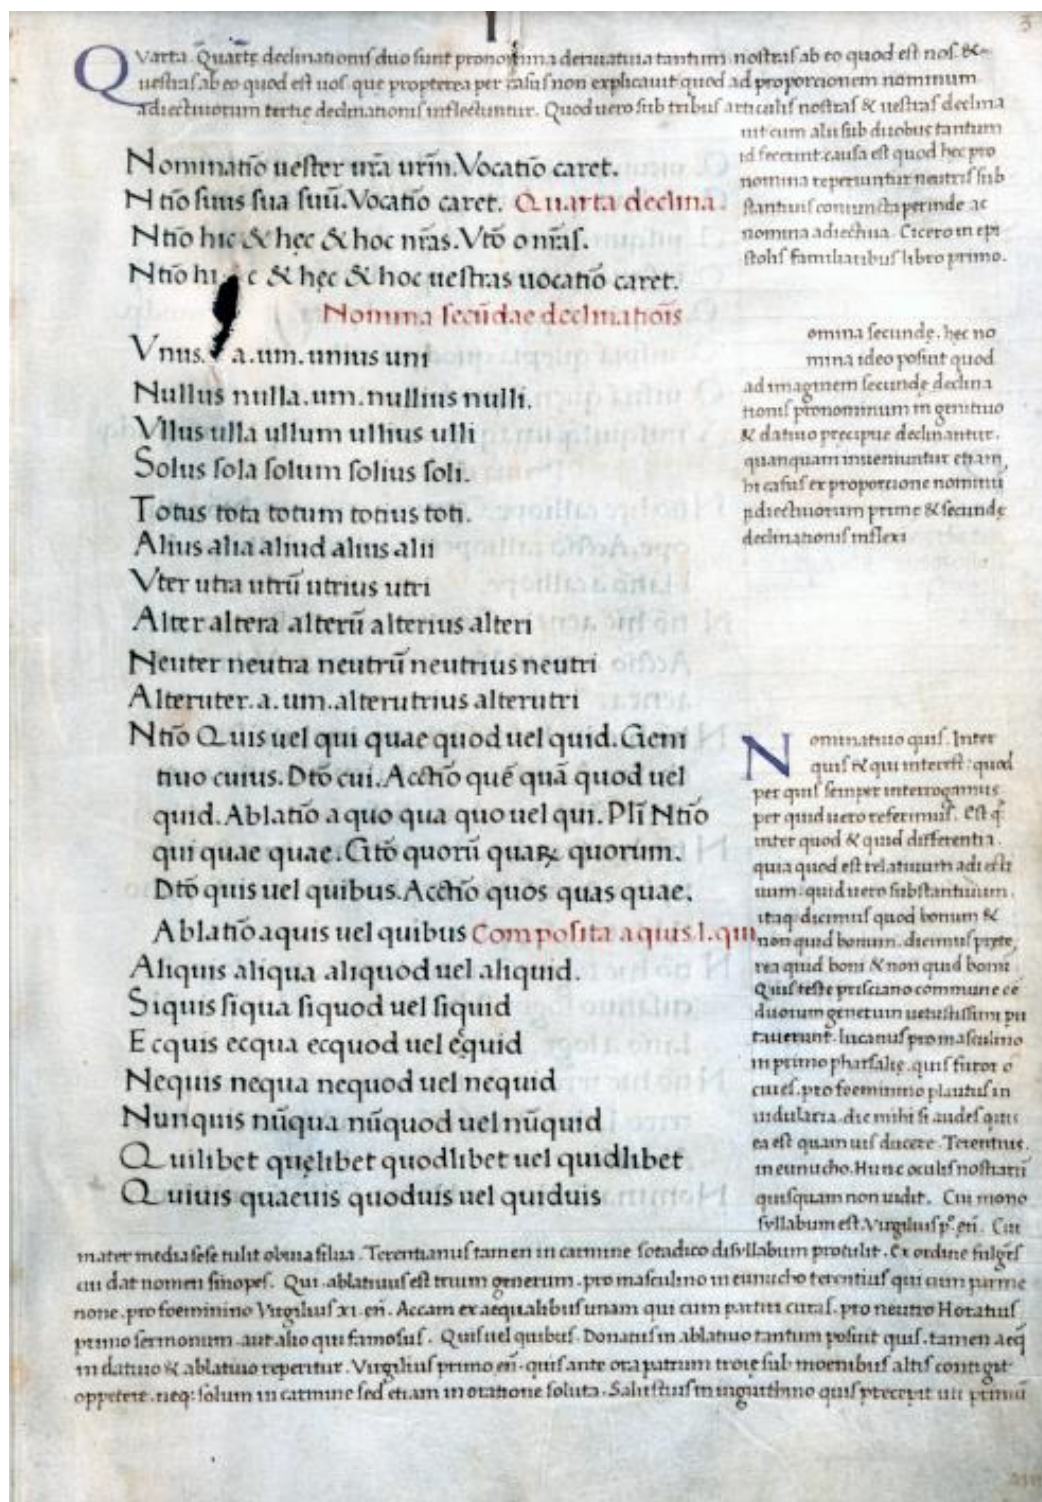 3
QVarta. Quartę declinationis duo sunt pronomina deriuatiua tantum nostras ab eo quod est nos. &
uestras ab eo quod est uos que propterea per casus non explicauit quod ad proporcionem nominum
adiectiuorum tertię declinationis inflectuntur. Quod uero sub tribus articulis nostras & uestras declina
nit cum alii sub duobus tantum
id fecerint causa est quod hęc pro
nomina reperiuntur neutris sub
stantiuis coniuncta perinde ac
nomina adiectiua. Cicero in epi
stolis familiaribus libro primo.
Nominatiō uester urā urm̄. Vocatiō caret.
Ntiō suus sua suū. Vocatiō caret. Quarta declina.
Ntiō hic & hęc & hoc nrās. Vtō o nrās.
Ntiō hi c & hęc & hoc uestras uocatiō caret.
Nomina secūdae declinatiōis
Vnus. a. um. unius uni
Nullus nulla. um. nullius nulli.
Vllus ulla ullum ullius ulli
Solus sola solum solius soli.
Totus tota totum totius toti.
Alius alia aliud alius alii
Vter utra utrū utrius utri
Alter altera alterū alterius alteri
Neuter neutra neutrū neutrius neutri
Alteruter. a. um. alterutrius alterutri
omina secundę. hec no
mina ideo posuit quod
ad imaginem secundę declina
tionis pronominum in genituo
& datiuo pręcipue declinantur.
quanquam inueniuntur etiam
hi casus ex proporcione nominū
adiectiuorum prime & secundę
declinationis inflexi
Ntiō Quis uel qui quae quod uel quid. Geni
tiuo cuius. Dtō cui. Acctiō quē quā quod uel
quid. Ablatiō a quo qua quo uel qui. Plī Ntiō
qui quae quae. Gtō quorū quaꝝ quorum.
Dtō quis uel quibus. Acctiō quos quas quae.
Ablatiō aquis uel quibus Composita a qius. l. qui
Aliquis aliqua aliquod uel aliquid.
Siquis siqua siquod uel siquid
Ecquis ecqua ecquod uel eqcuid
Nequis nequa nequod uel nequid
Nunquis nūqua nūquod uel nūquid
Quilibet quęlibet quodlibet uel quidlibet
Quiuis quaeuis quoduis uel quiduis
Nominatiuo quis. Inter
quis & qui interest: quod
per quis semper interrogamus
per quid uero referimus. Est q̄
inter quod & quid differentia
quia quod est relatiuum adiecti
uum: quid uero substantiuum.
itaq; dicimus quod bonum &
non quid bonum. dicimus prętę
rea quid boni & non quid bonū
Quis teste prisciano commune cē
duorum generum uetustissimi pu
tauerunt. lucanus pro masculino
in primo pharsalię. quis furor o
ciues. pro foeminino plautus in
uidularia. dic mihi si audes quis
ea est quam uis ducere. Terentius
in eunucho. Hunc oculis nostrarū
quisquam non uidit. Cui mono
syllabum est. Virgilius p.º en̄. Cui
mater media sese tulit obuia silua. Terentianus tamen in carmine sotadico disyllabum protulit. Ex ordine fulgēs
cui dat nomen sinopes. Qui. ablatiuus est trium generum. pro masculino in eunucho terentius qui cum parme
none. pro foeminino Virgilius xi. en̄. Accam ex aequalibus unam qui cum partiri curas. pro neutro Horatius
primo sermonum. aut alio qui famosus. Quis uel quibus. Donatus in ablatiuo tantum posuit quis. tamen aeq̄
in datiuo & ablatiuo reperitur. Virgilius primo en̄. quis ante ora patrum troię sub moenibus altis contigit
oppetere. neq; solum in carmine sed etiam in oratione soluta. Salustius in iugurthino quis pręcepit uti primū